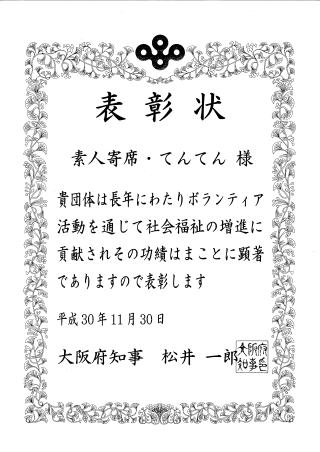 表彰状
素人寄席・てんてん 様
貴団体は長年にわたりボランティア
活動を通じて社会福祉の増進に
貢献されその功績はまことに顕著
でありますので表彰します
平成30年11月30日
大阪府知事 松井 一郎
大阪府
知事之印